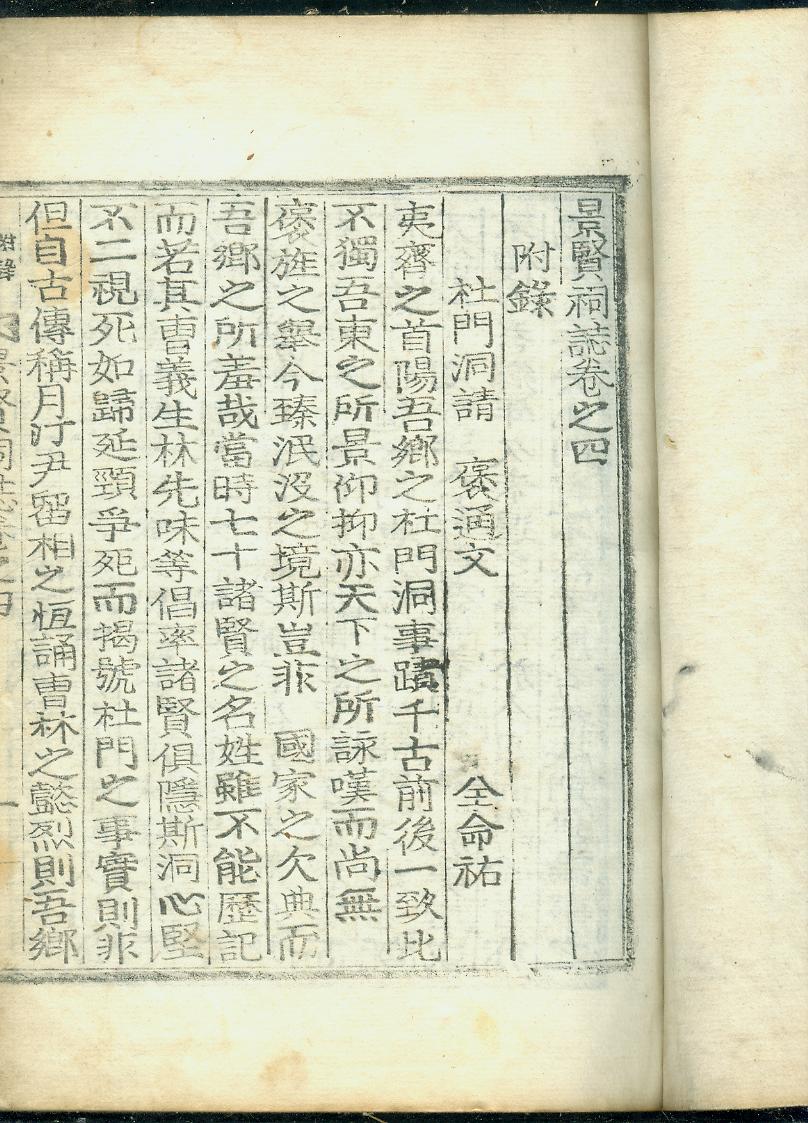 景賢祠誌卷之四
附錄
杜門洞請 褒通文 全命祐
夷齊之首陽吾鄉之杜門洞事蹟千古前後一致比
不獨吾東之所景仰抑亦天下之所詠嘆而尚無
褒旌之舉今臻泯沒之境斯豈非 國家之欠典而
吾鄉之所羞哉當時七十諸賢之名姓雖不能歷記
而若其曺義生林先味等倡率諸賢俱隱斯洞心堅
不二視死如歸延頸爭死而揭號杜門之事實則非
但自古傳稱月汀尹留相之恒誦曺林之懿烈則吾鄉
附錄 景賢祠誌卷之四 一